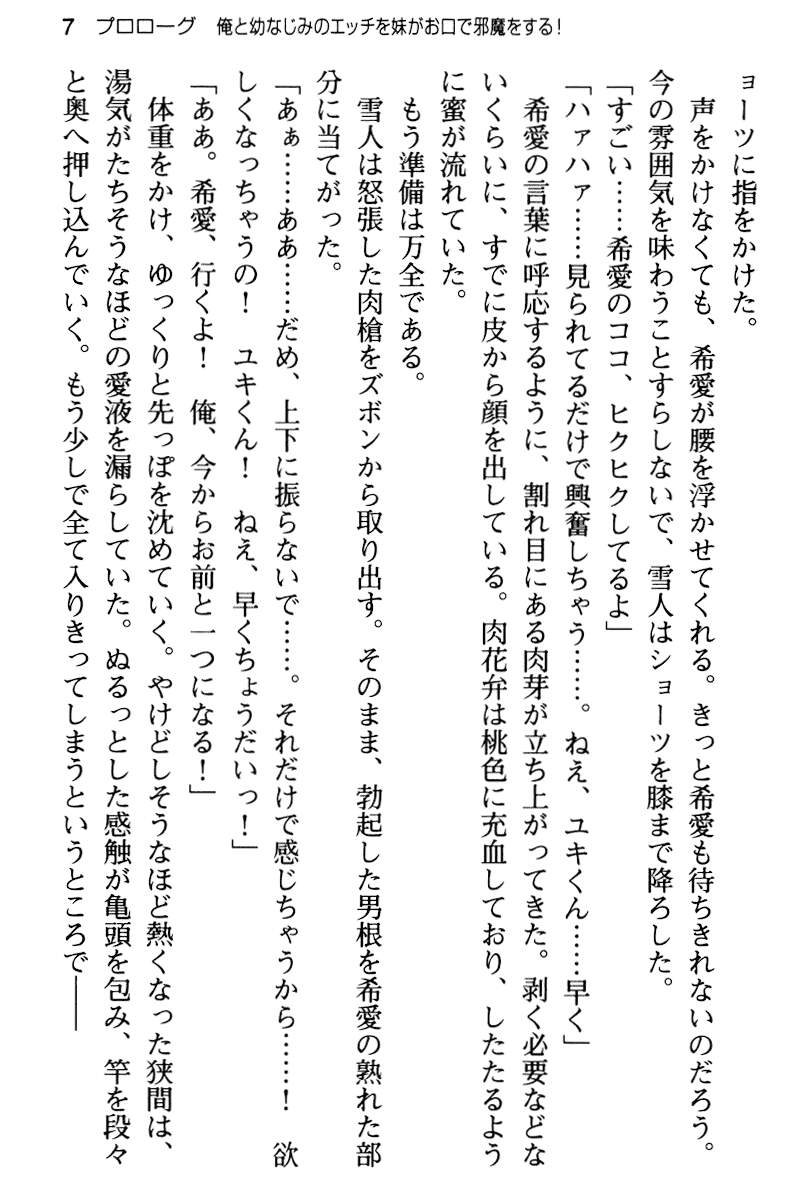 7　プロローグ　俺と幼なじみのエッチを妹がお口で邪魔をする！
ョーツに指をかけた。
　声をかけなくても、希愛が腰を浮かせてくれる。きっと希愛も待ちきれないのだろう。
今の雰囲気を味わうことすらしないで、雪人はショーツを膝まで降ろした。
「すごい……希愛のココ、ヒクヒクしてるよ」
「ハァハァ……見られてるだけで興奮しちゃう……。ねえ、ユキくん……早く」
　希愛の言葉に呼応するように、割れ目にある肉芽が立ち上がってきた。剥く必要などな
いくらいに、すでに皮から顔を出している。肉花弁は桃色に充血しており、したたるよう
に蜜が流れていた。
　もう準備は万全である。
　雪人は怒張した肉槍をズボンから取り出す。そのまま、勃起した男根を希愛の熟れた部
分に当てがった。
「あぁ……ああ……だめ、上下に振らないで……。それだけで感じちゃうから……！　欲
しくなっちゃうの！　ユキくん！　ねえ、早くちょうだいっ！」
「ああ。希愛、行くよ！　俺、今からお前と一つになる！」
　体重をかけ、ゆっくりと先っぽを沈めていく。やけどしそうなほど熱くなった狭間は、
湯気がたちそうなほどの愛液を漏らしていた。ぬるっとした感触が亀頭を包み、竿を段々
と奥へ押し込んでいく。もう少しで全て入りきってしまうというところで――